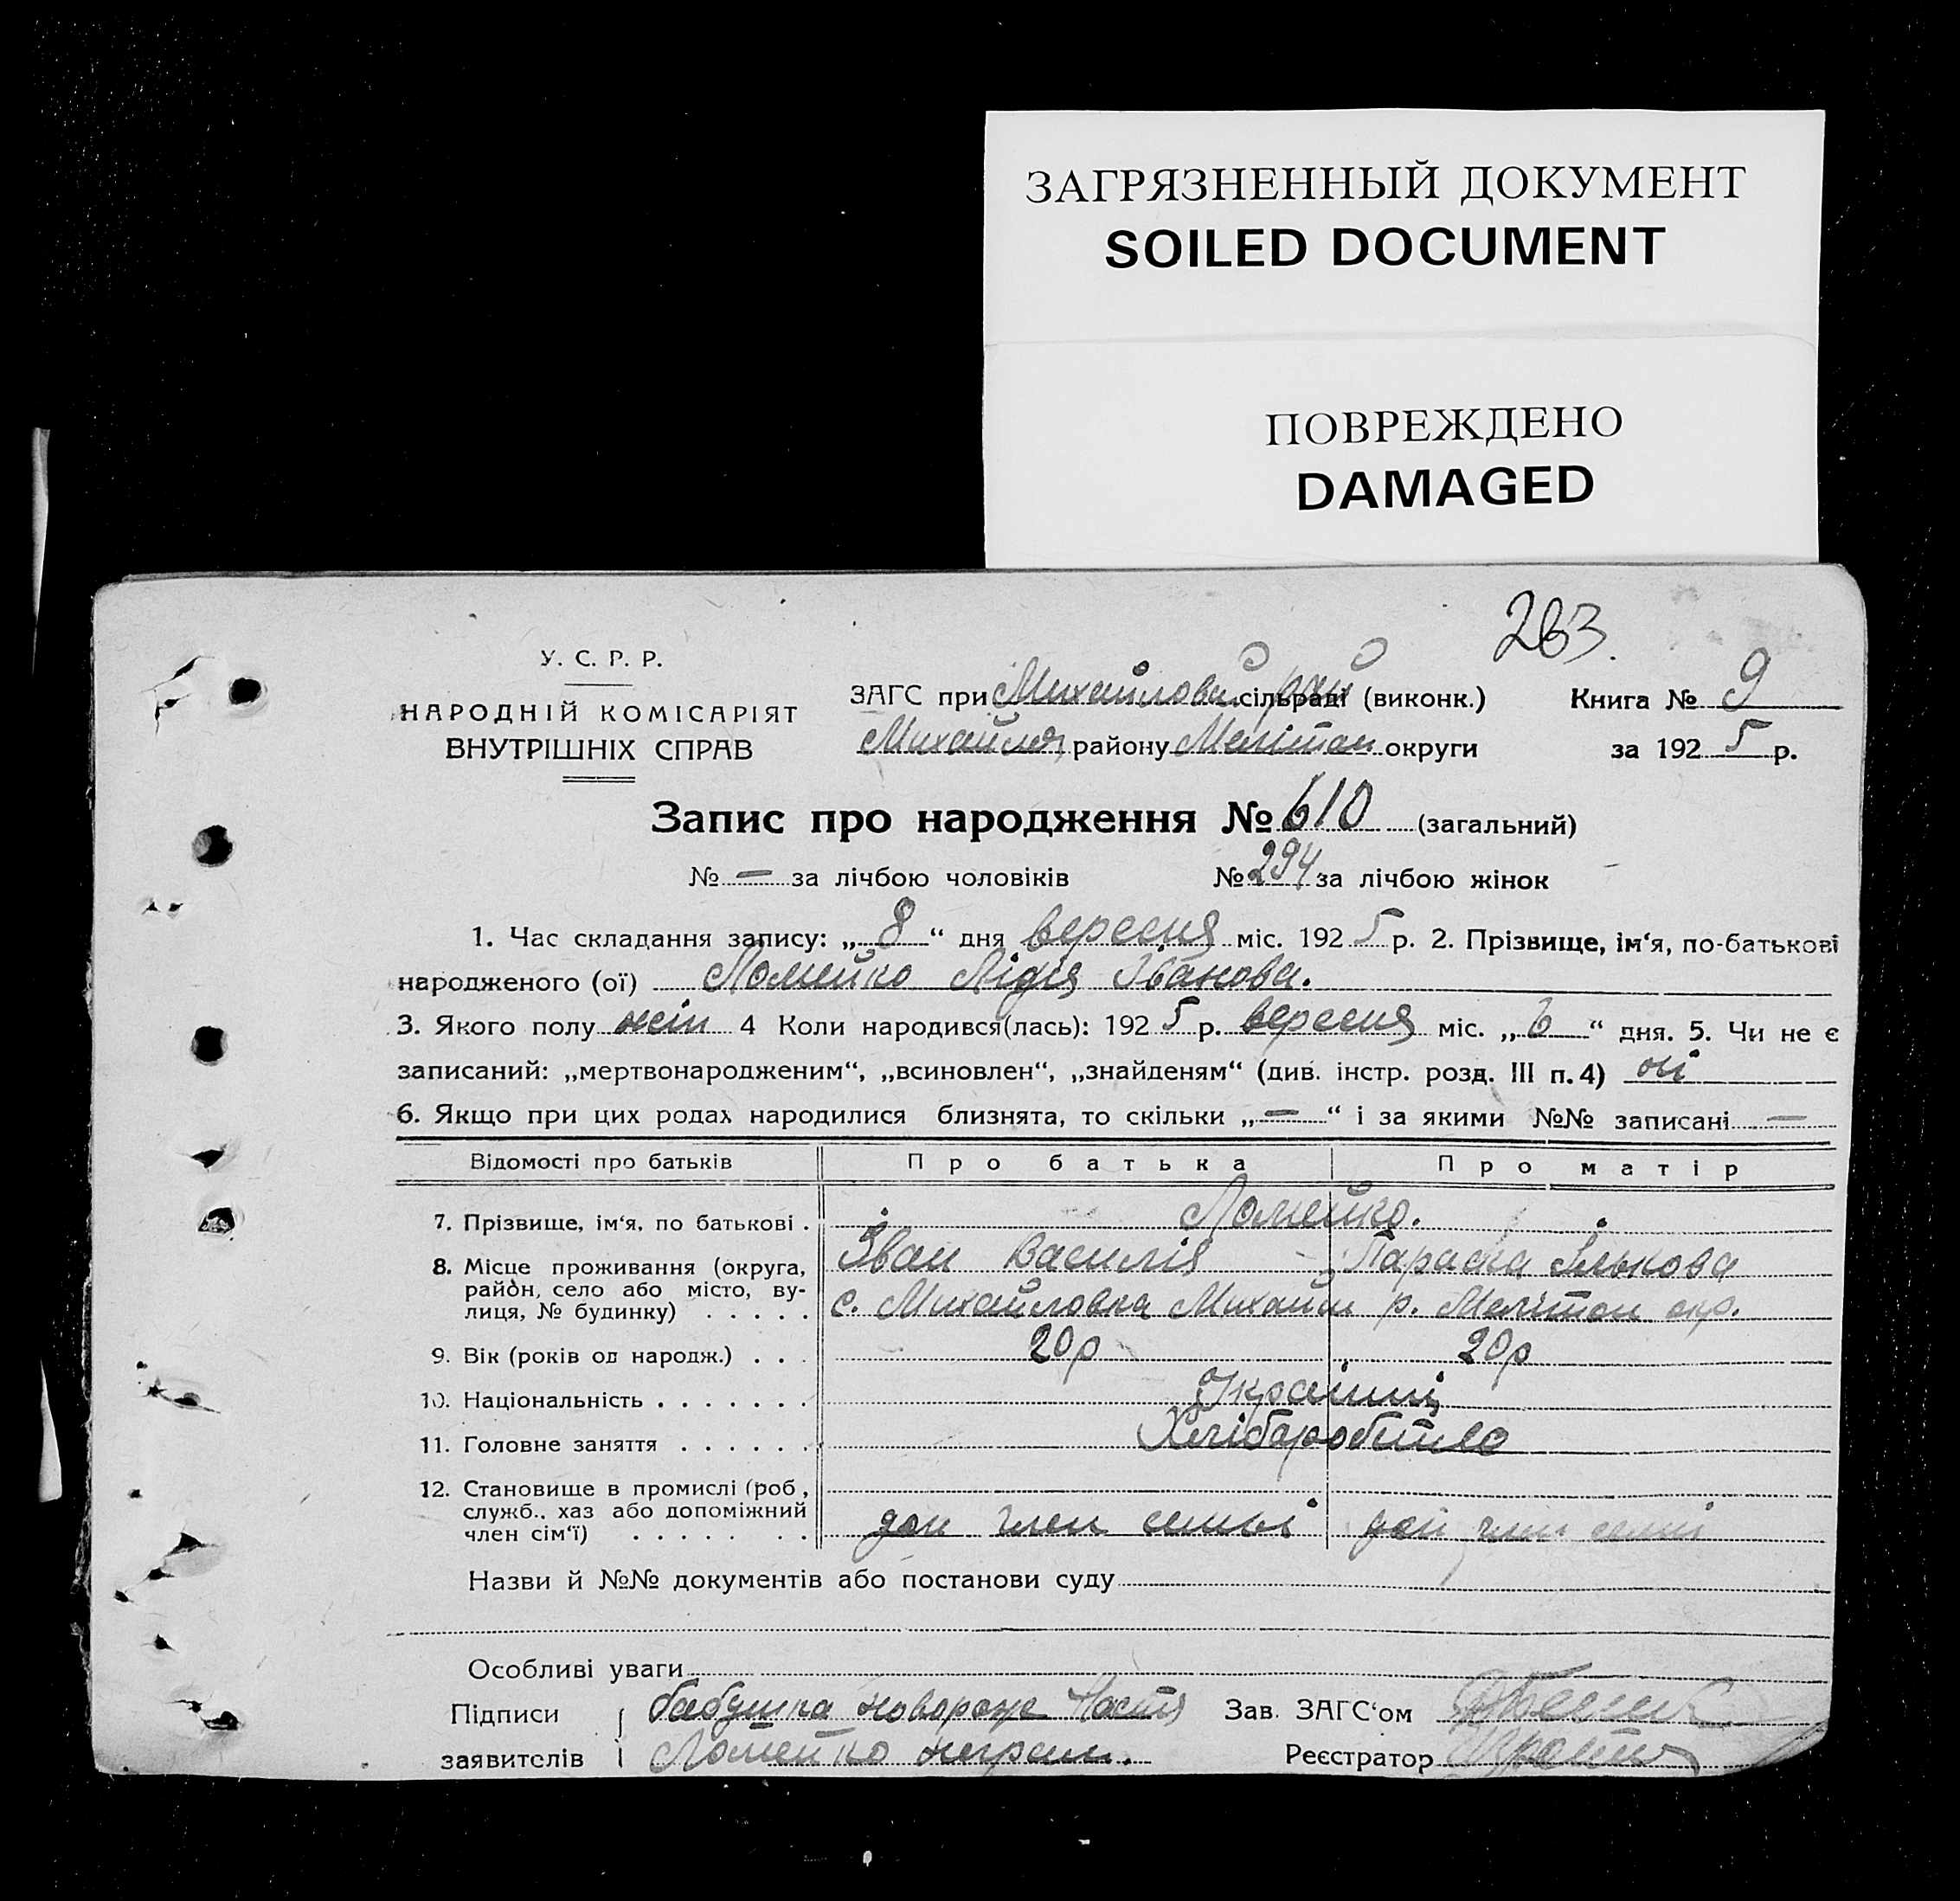 ЗАГРЯЗНЕННЫЙ ДОКУМЕНТ
SOILED DOCUMENT
ПОВРЕЖДЕНО
DAMAGED
263.
У. С. Р. Р.
НАРОДНІЙ КОМІСАРІЯТ
ВНУТРІШНІХ СПРАВ
ЗАГС при Михайловск сільраді (виконк.) Книга № 9
Михайлов району Мелітоп округи за 1925 р.
Запис про народження № 610 (загальний)
№ — за лічбою чоловіків № 294 за лічбою жінок
1. Час складання запису: „8“ дня вересня міс. 1925 р. 2. Прізвище, ім‘я, по-батькові
народженого (ої) Ломейко Лідія Іванова.
3. Якого полу жін 4 Коли народився(лась): 1925 р. вересня міс. „6“ дня. 5. Чи не є
записаний: „мертвонародженим“, „всиновлен“, „знайденям“ (див. інстр. розд. III п. 4) ні
6. Якщо при цих родах народилися близнята, то скільки „—“ і за якими №№ записані —
Відомості про батьків Про батька Про матір
7. Прізвище, ім‘я, по батькові . Ломейко.
Іван Василів Параска Ількова
8. Місце проживання (округа,
район, село або місто, ву-
лиця, № будинку) . . . . . с. Михайловка Михайл р. Мелітоп окр.
9. Вік (років од народж.) . . . 20р 20р
10. Національність . . . . . . . Українці
11. Головне заняття . . . . . . Хліборобство
12. Становище в промислі (роб,
служб., хаз або допоміжний
член сім‘ї) . . . . . . . доп член семьі доп член семьі
Назви й №№ документів або постанови суду
Особливі уваги
Підписи бабушка новорож Настя Зав. ЗАГС‘ом
заявителів Ломейко неграм. Реєстратор